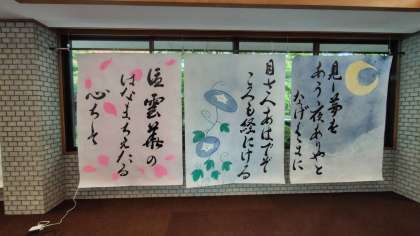 見し夢を
あう夜ありやと
なげくまに
目さへあはでぞ
ころも経にける
優曇華の
はなまちえたる
心ちして